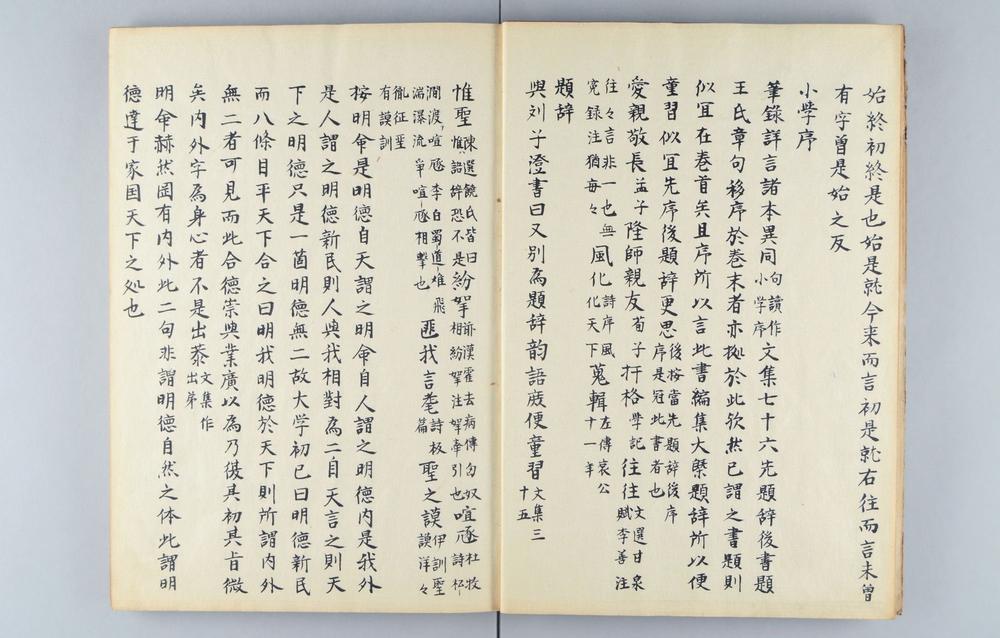 始終初終是也始是就今来而言初是就右往而言未曾
有字曽是始之反
小学序
筆錄詳言諸本異同句讀作小学序文集七十六先題辞後書題
王氏章句移序於巻末者亦拠於此欤然已謂之書題則
似冝在巻首矣且序所以言此書編集大槩題辞所以便
童習似冝先序後題辞更思後按當先題辞後序序是冠此書者也
愛親敬長孟子隆師親友荀子扞格学記往往文選甘泉賦李善注
往々言非一也無究録注猶毎々風化詩序風化天下蒐輯左傳哀公十一年
題辞
與刘子澄書曰又別為題辞韵語庶便童習文集三十五
惟聖陳選饒氏皆曰惟詔辞恐不是紛挐前漢霍去病傳匈奴相紛挐注挐牽引也喧豗杜牧詩杯
澗渡喧豗李白蜀道难飛湍瀑流爭喧豗相擊也匪我言耄詩板篇聖之謨伊訓聖謨洋々
胤征聖有謨訓
按明命是明德自天謂之明命自人謂之明德内是我外
是人謂之明德新民則人與我相對為二自天言之則天
下之明德只是一箇明德無二故大学初已曰明德新民
而八條目平天下合之曰明我明德於天下則所謂内外
無二者可見而此合德崇與業廣以為乃復其初其㫖微
矣内外字為身心者不是出恭文集作出弟
明命赫然罔有内外此二句非謂明德自然之体此謂明
德達于家国天下之処也